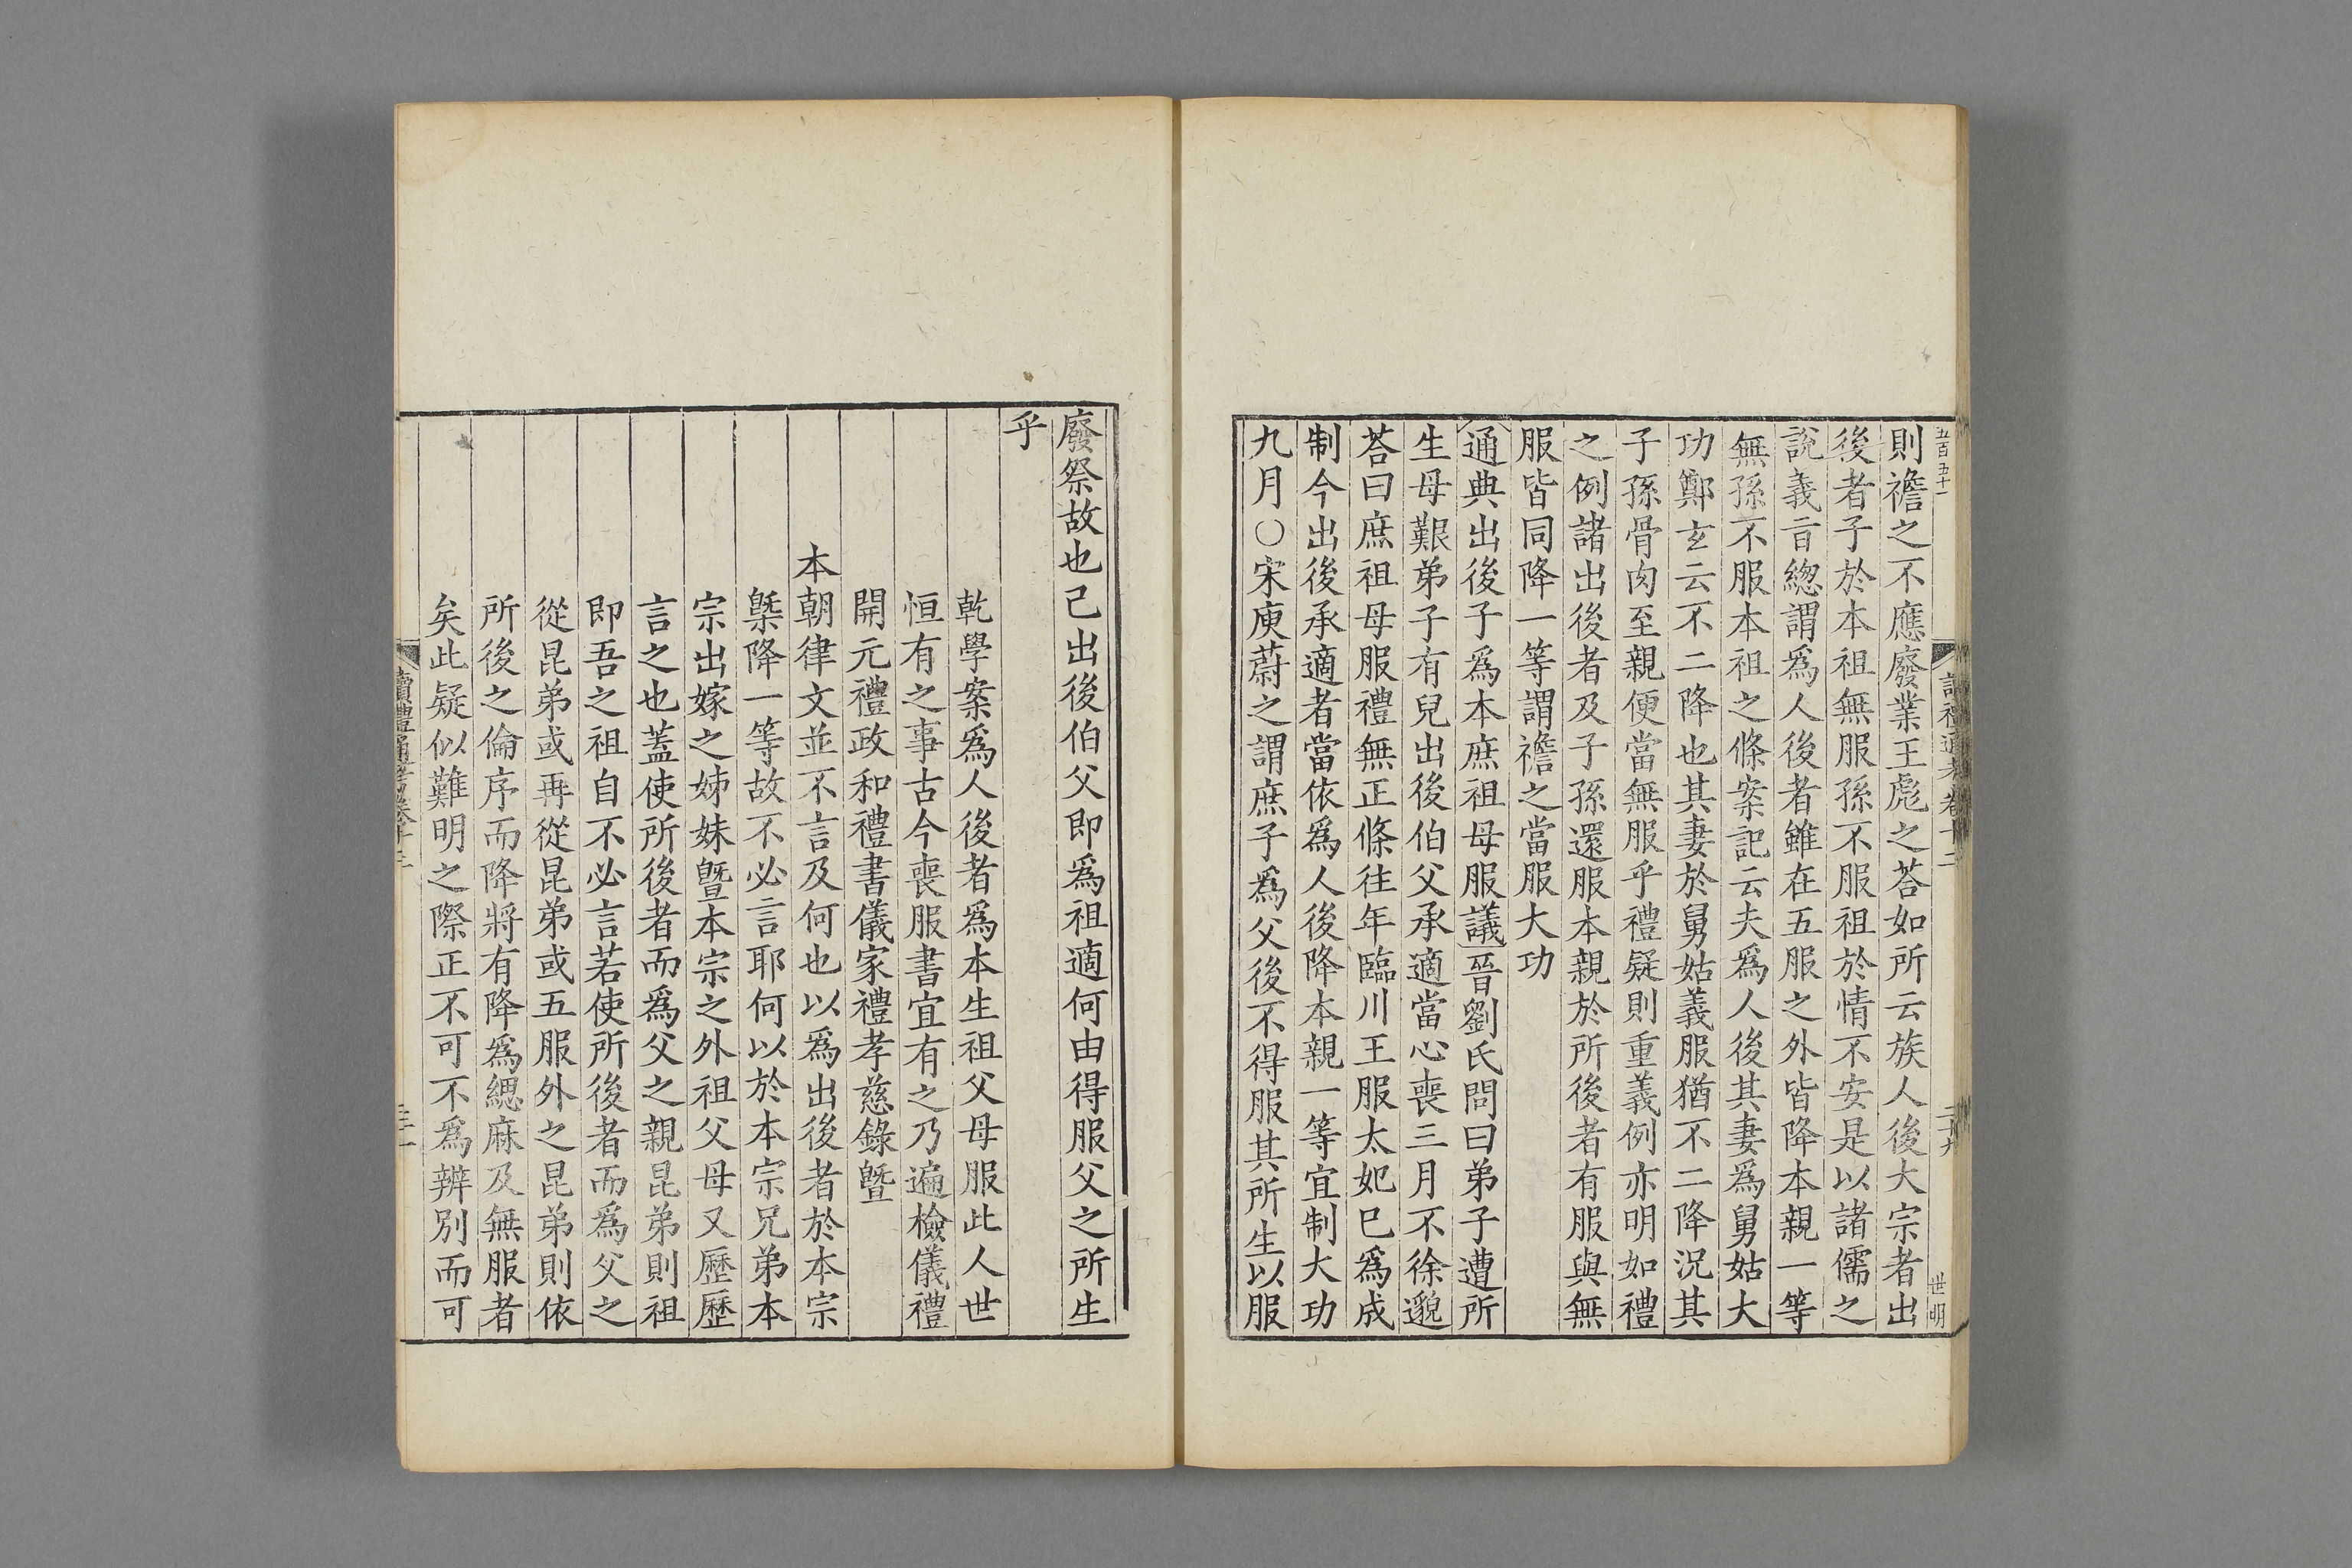 五百五十一
讀禮通考卷十二
二十九
世明
則襜之不應廢業王彪之荅如所云族人後大宗者出
後者子於本祖無服孫不服祖於情不安是以諸儒之
說義㫖緦謂爲人後者雖在五服之外皆降本親一等
無孫不服本祖之條案記云夫爲人後其妻爲舅姑大
功鄭玄云不二降也其妻於舅姑義服猶不二降況其
子孫骨肉至親便當無服乎禮疑則重義例亦明如禮
之例諸出後者及子孫還服本親於所後者有服與無
服皆同降一等謂襜之當服大功
通典出後子爲本庶祖母服議晉劉氏問曰弟子遭所
生母艱弟子有兒出後伯父承適當心喪三月不徐邈
荅曰庶祖母服禮無正條往年臨川王服太妃已爲成
制今出後承適者當依爲人後降本親一等宜制大功
九月○宋庾蔚之謂庶子爲父後不得服其所生以服
廢祭故也己出後伯父即爲祖適何由得服父之所生
乎
乾學案爲人後者爲本生祖父母服此人世
恒有之事古今喪服書宜有之乃遍檢儀禮
開元禮政和禮書儀家禮孝慈錄曁
本朝律文並不言及何也以爲出後者於本宗
槩降一等故不必言耶何以於本宗兄弟本
宗出嫁之姊妹曁本宗之外祖父母又歷歷
言之也蓋使所後者而爲父之親昆弟則祖
即吾之祖自不必言若使所後者而爲父之
從昆弟或再從昆弟或五服外之昆弟則依
所後之倫序而降將有降爲緦麻及無服者
矣此疑似難明之際正不可不爲辨別而可
讀禮通考卷十二